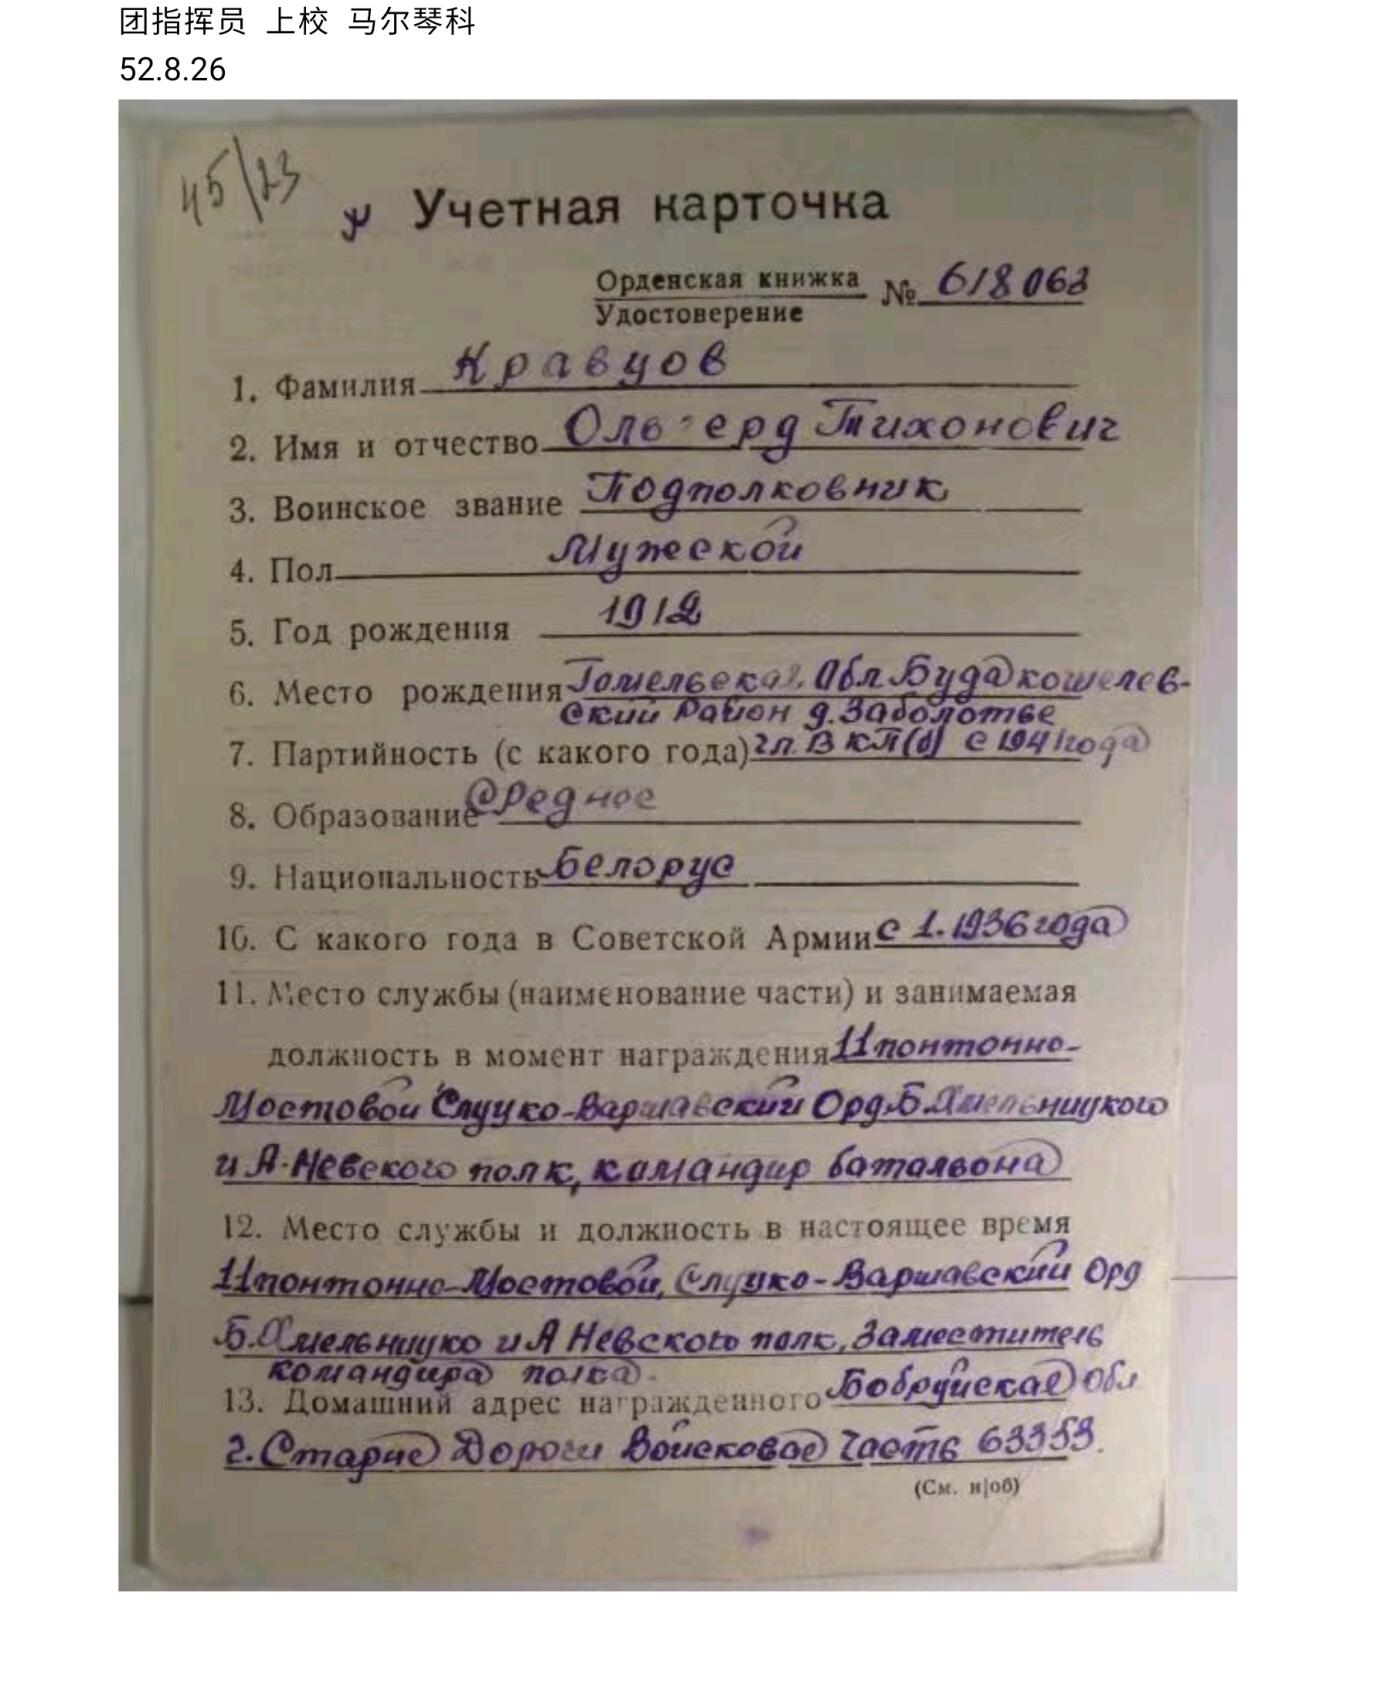 团指挥员 上校 马尔琴科
52.8.26
45/23
Учетная карточка
Орденская книжка
Удостоверение
№ 618063
1. Фамилия Кравцов
2. Имя и отчество Ольгерд Тихонович
3. Воинское звание Подполковник
4. Пол Мужской
5. Год рождения 1912
6. Место рождения Гомельская Обл Будакошелев-
ский Район д. Заболотье
7. Партийность (с какого года) чл. ВКП(б) с 1941 года
8. Образование Среднее
9. Национальность Белорус
10. С какого года в Советской Армии с 1.1936 года
11. Место службы (наименование части) и занимаемая
должность в момент награждения 11 понтонно-
Мостовой Слуцко-Варшавский Орд. Б. Хмельницкого
и А. Невского полк, командир баталвона
12. Место службы и должность в настоящее время
11 понтонно-Мостовой, Слуцко-Варшавский Орд
Б. Хмельницко и А Невского полк, Заместитель
командира полка.
13. Домашний адрес награжденного Бобруйская Обл
г. Старые Дороги Войсковая Часть 63353.
(См. н|об)